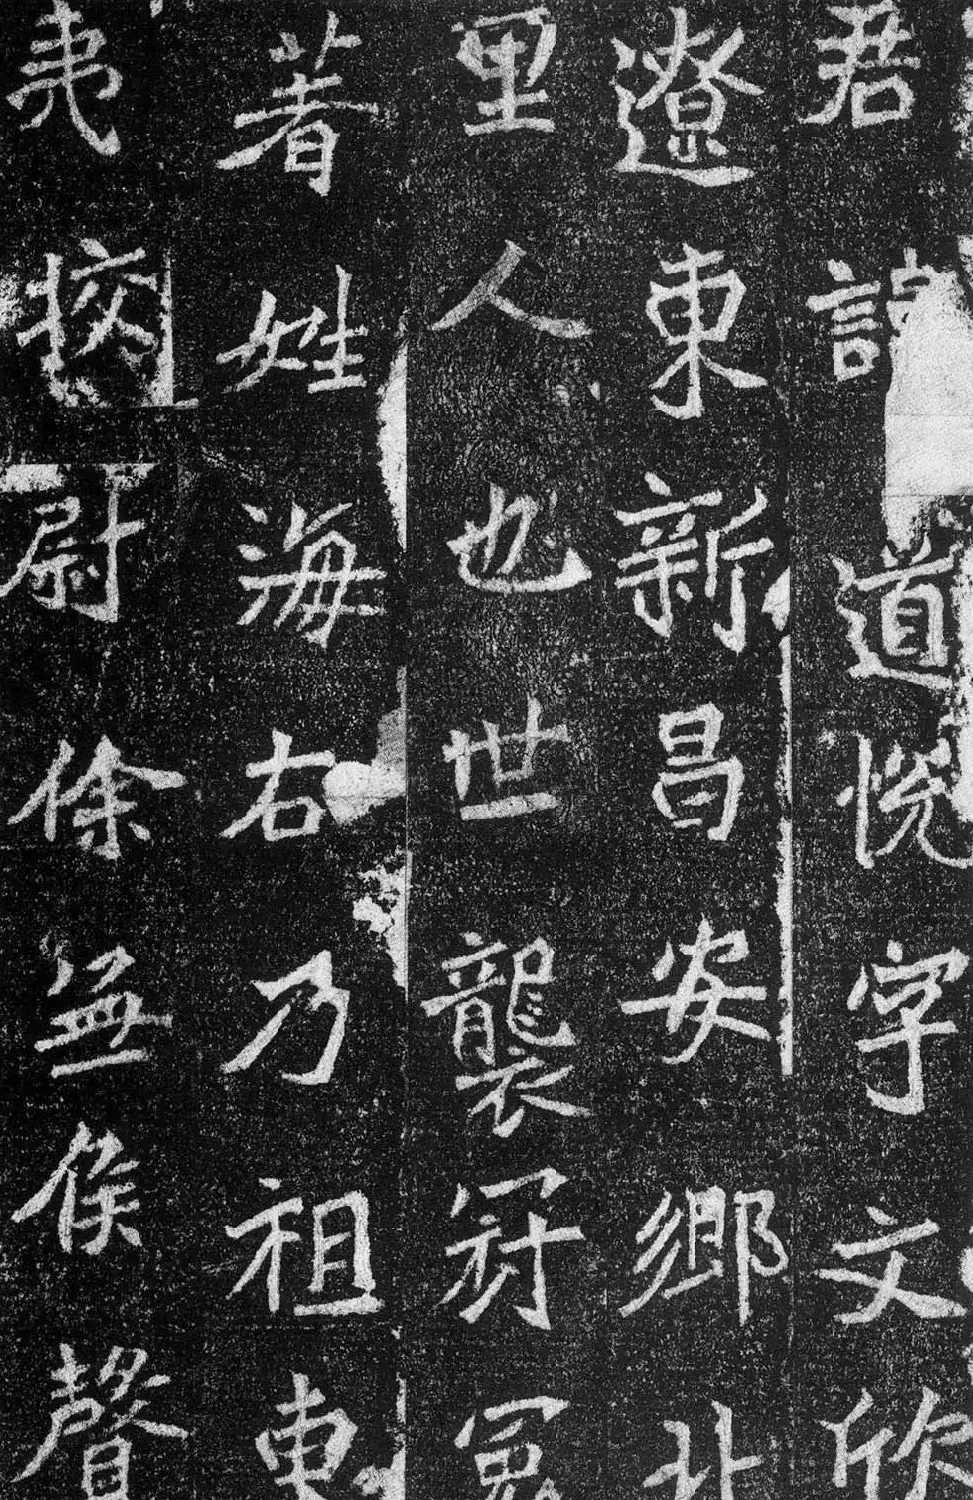 君諱道悦字文欣
遼東新昌安鄉北
里人也世襲冠冕
著姓海右乃祖東
夷挍尉徐無侯聲